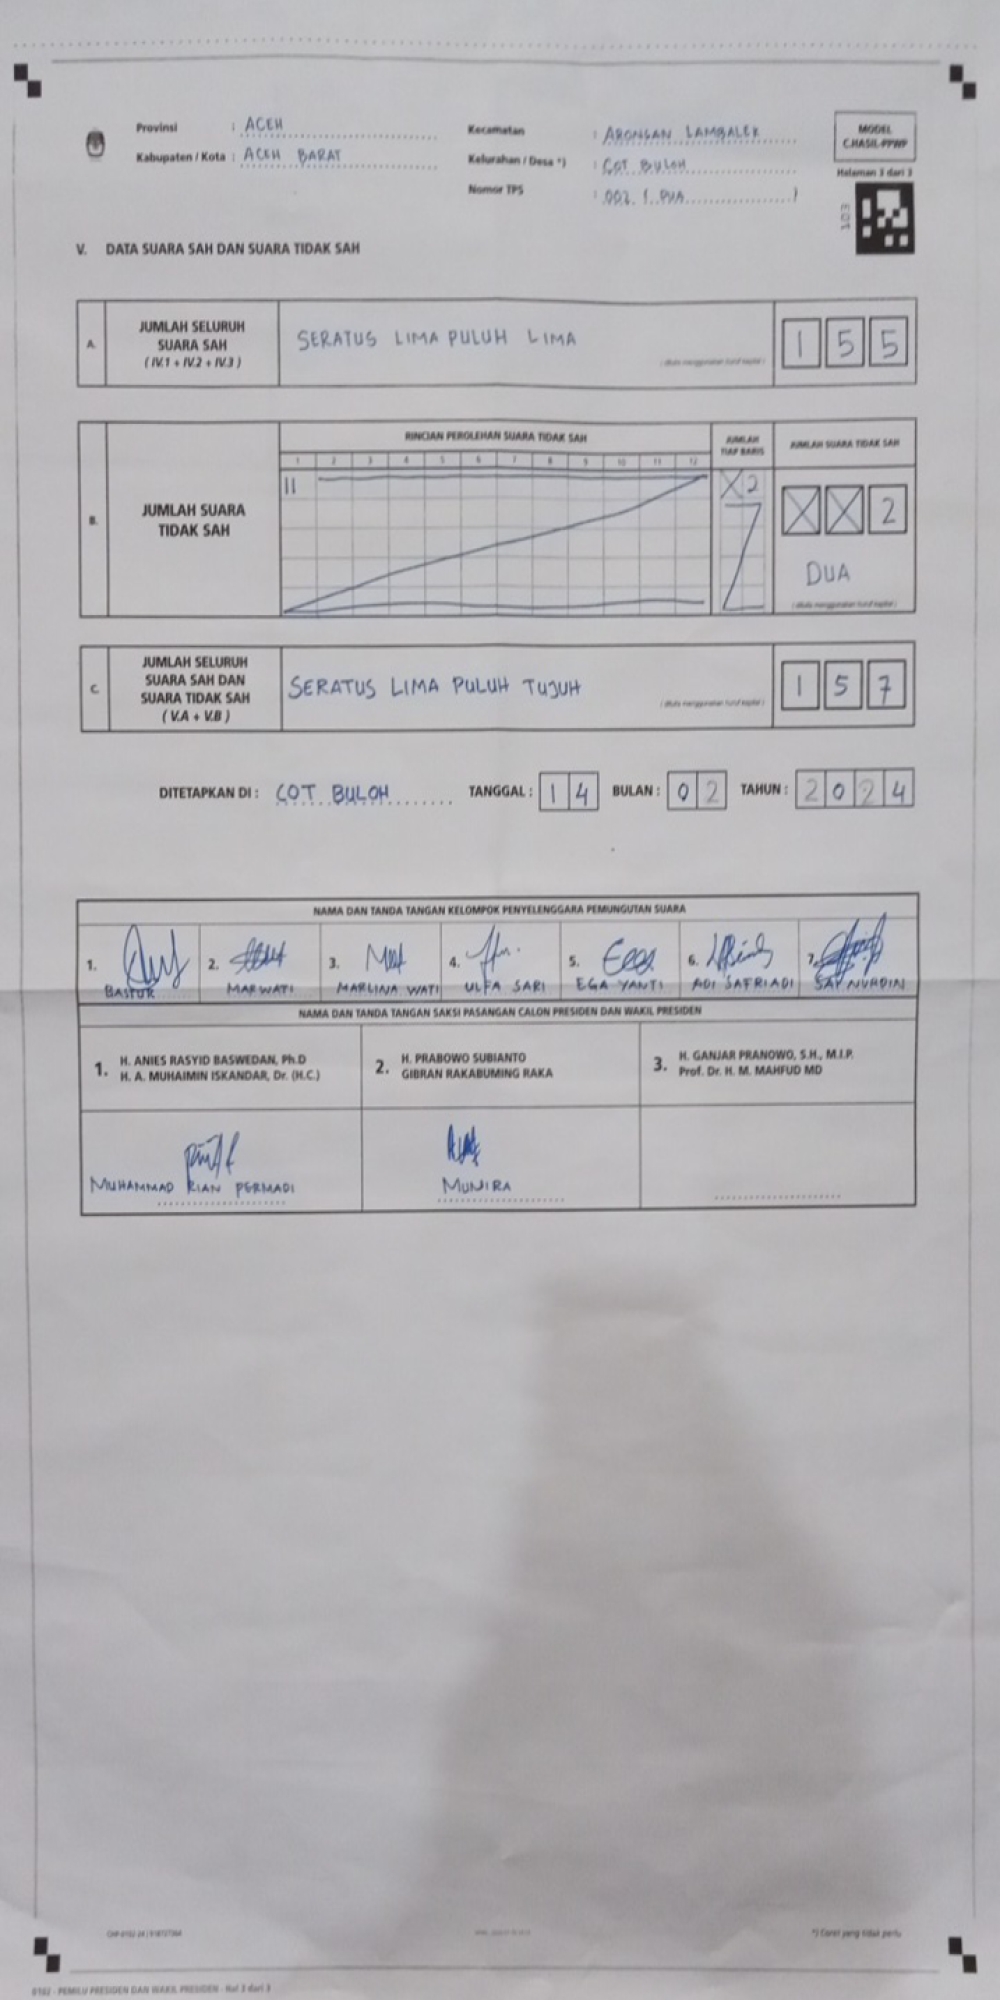 Provinsi : ACEH
Kabupaten / Kota : ACEH BARAT
Kecamatan : ARONGAN LAMBALEK
Kelurahan / Desa *) : COT BULOH
Nomor TPS : 002 ( DUA )
MODEL
C.HASIL-PPWP
Halaman 3 dari 3
103
V. DATA SUARA SAH DAN SUARA TIDAK SAH
A. JUMLAH SELURUH SUARA SAH ( IV.1 + IV.2 + IV.3 )
SERATUS LIMA PULUH LIMA
( ditulis menggunakan huruf kapital )
1 5 5
B. JUMLAH SUARA TIDAK SAH
RINCIAN PEROLEHAN SUARA TIDAK SAH
1 2 3 4 5 6 7 8 9 10 11 12
II
JUMLAH TIAP BARIS
X 2
JUMLAH SUARA TIDAK SAH
X X 2
DUA
( ditulis menggunakan huruf kapital )
C. JUMLAH SELURUH SUARA SAH DAN SUARA TIDAK SAH ( V.A + V.B )
SERATUS LIMA PULUH TUJUH
( ditulis menggunakan huruf kapital )
1 5 7
DITETAPKAN DI : COT BULOH TANGGAL : 1 4 BULAN : 0 2 TAHUN : 2 0 2 4
NAMA DAN TANDA TANGAN KELOMPOK PENYELENGGARA PEMUNGUTAN SUARA
1. BASTUR
2. MARWATI
3. MARLINA WATI
4. ULFA SARI
5. EGA YANTI
6. ADI SAFRIADI
7. SAY NURDIN
NAMA DAN TANDA TANGAN SAKSI PASANGAN CALON PRESIDEN DAN WAKIL PRESIDEN
1. H. ANIES RASYID BASWEDAN, Ph.D
H. A. MUHAIMIN ISKANDAR, Dr. (H.C.)
2. H. PRABOWO SUBIANTO
GIBRAN RAKABUMING RAKA
3. H. GANJAR PRANOWO, S.H., M.I.P.
Prof. Dr. H. M. MAHFUD MD
MUHAMMAD RIAN PERMADI
MUNIRA
*) Coret yang tidak perlu
0102 - PEMILU PRESIDEN DAN WAKIL PRESIDEN - Hal 3 dari 3